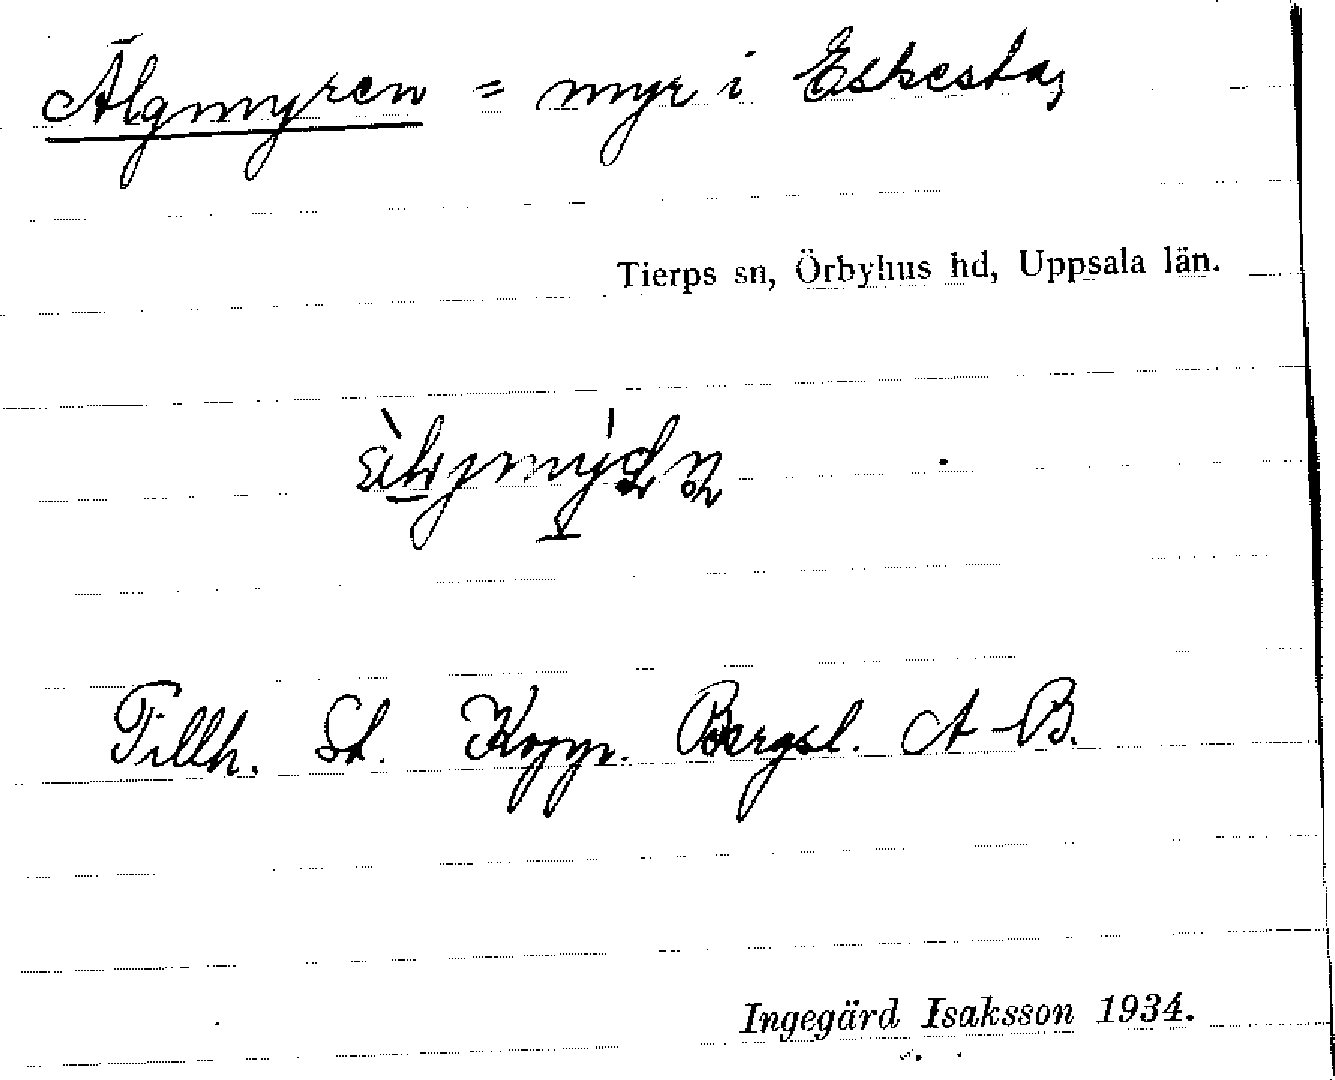 Älgmyren = myr i Eskesta,
Tierps sn, Örbyhus hd, Uppsala län.
Tillh. St. Koppr. Bergsl. A-B.
Ingegärd Isaksson 1934.